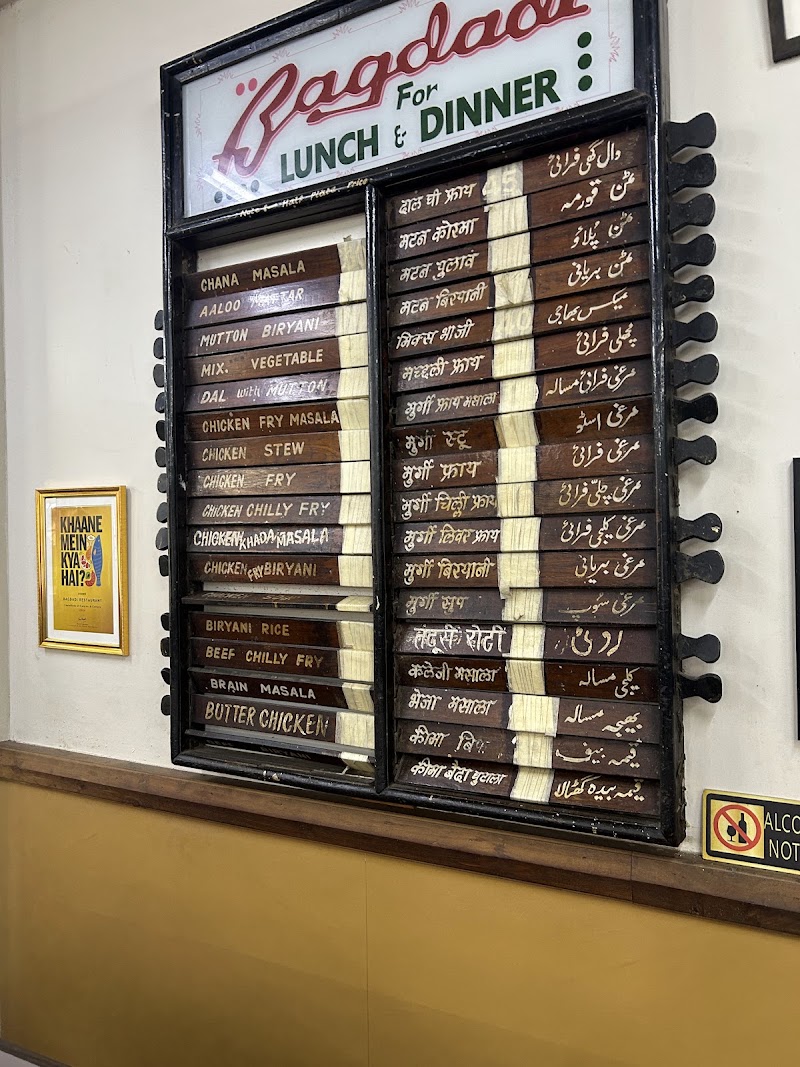 Bagdadi
For
LUNCH & DINNER
Note :- Half Plate. Price
CHANA MASALA
AALOO MATTAR
MUTTON BIRYANI
MIX. VEGETABLE
DAL with MUTTON
CHICKEN FRY MASALA
CHICKEN STEW
CHICKEN FRY
CHICKEN CHILLY FRY
CHICKEN KHADA MASALA
CHICKEN FRY BIRYANI
BIRYANI RICE
BEEF CHILLY FRY
BRAIN MASALA
BUTTER CHICKEN
दाल घी फ्राय 45 دال گھی فرائی
मटन कोरमा مٹن قورمہ
मटन पुलाव مٹن پلاؤ
मटन बिरयानी مٹن بریانی
मिक्स भाजी میکس بھاجی
मच्छली फ्राय مچھلی فرائی
मुर्गी फ्राय मसाला مرغی فرائی مسالہ
मुर्गी स्टू مرغی اسٹو
मुर्गी फ्राय مرغی فرائی
मुर्गी चिल्ली फ्राय مرغی چلّی فرائی
मुर्गी लिवर फ्राय مرغی کلیجی فرائی
मुर्गी बिरयानी مرغی بریانی
मुर्गी सूप مرغی سُوپ
तंदुरी रोटी روٹی
कलेजी मसाला کلیجی مسالہ
भेजा मसाला بھیجہ مسالہ
कीमा قیمہ بیف
कीमा बैदा घुटाला قیمہ بیدہ گھٹالا
KHAANE
MEIN
KYA
HAI?
BAGDADI RESTAURANT
ALCO
NOT